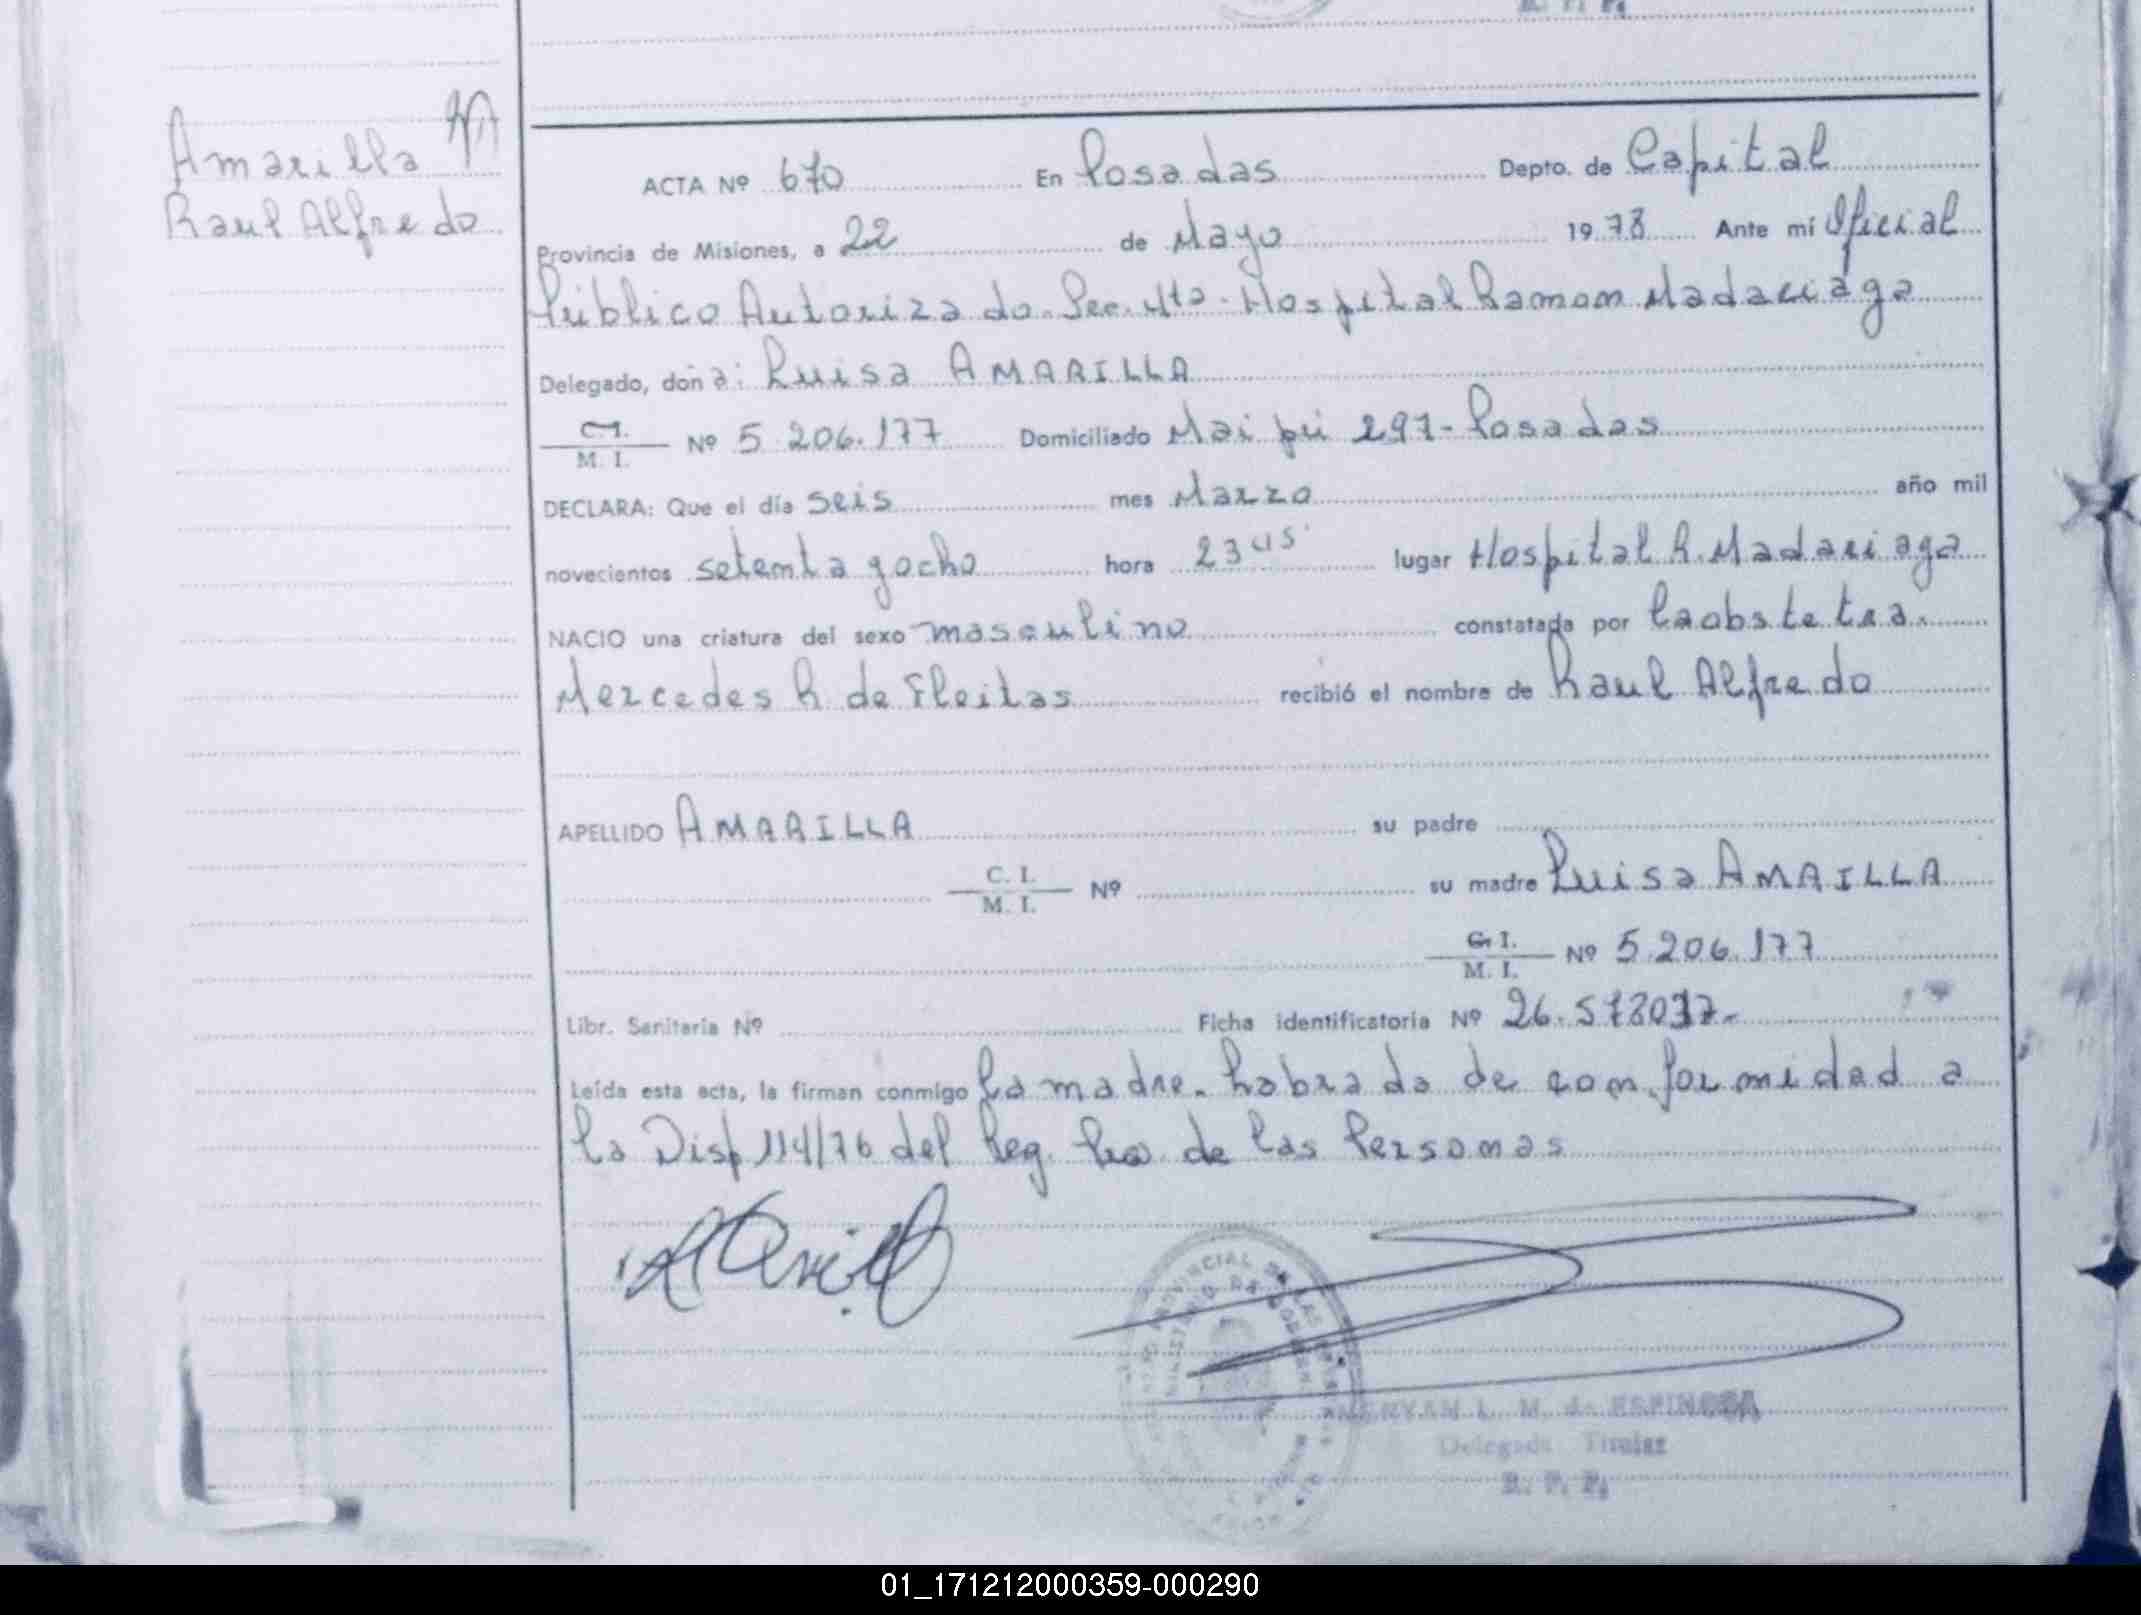 Amarilla
Raul Alfredo
ACTA Nº 670 En Posadas Depto. de Capital
Provincia de Misiones, a 22 de Mayo 1978 Ante mí Oficial
Público Autorizado. Sec. 4ta. Hospital Ramon Madariaga
Delegado, doña: Luisa AMARILLA
C. I.
M. I. Nº 5.206.177 Domiciliado Maipú 297 - Posadas
DECLARA: Que el día seis mes Marzo año mil
novecientos setenta y ocho hora 23 45' lugar Hospital R. Madariaga
NACIO una criatura del sexo masculino constatada por La obstetra.
Mercedes R de Fleitas recibió el nombre de Raul Alfredo
APELLIDO AMARILLA su padre
C. I.
M. I. Nº su madre Luisa AMAILLA
C. I.
M. I. Nº 5.206.177
Libr. Sanitaria Nº Ficha identificatoria Nº 26.578037-
Leída esta acta, la firman conmigo la madre. Labrada de conformidad a
la Disp 114/76 del Reg. de las Personas
MINISTERIO DE
L. M. de ESPINOSA
Delegada Titular
R. P. P.
01_171212000359-000290